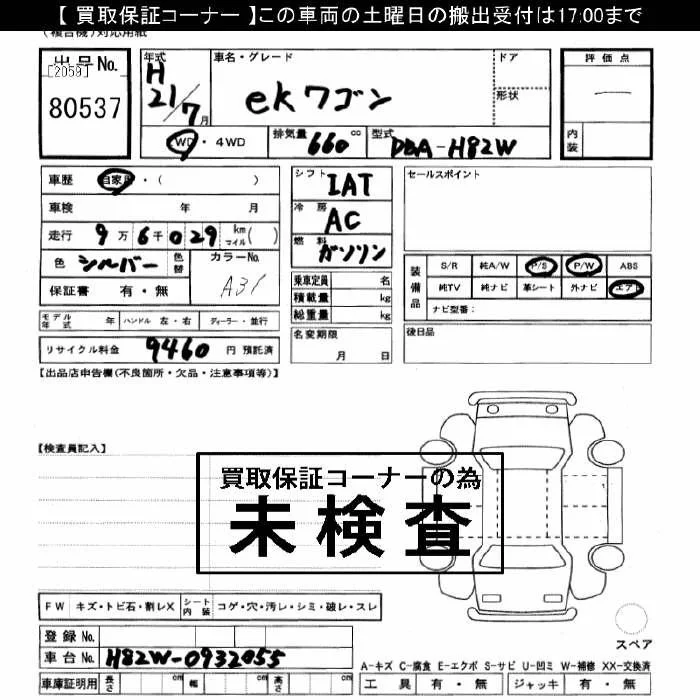 【 買取保証コーナー 】この車両の土曜日の搬出受付は17:00まで
(複合機)対応用紙
出品No.
[2059]
80537
年式
H
21/7月
車名・グレード
ekワゴン
ドア
形状
評価点
ー
内装
2WD・4WD
排気量 660 cc
型式 DBA-H82W
車歴 自家用・( )
車検 年 月
走行 9万6千029 km マイル( )
色 シルバー 色替
カラーNo.
A31
保証書 有・無
シフト IAT
冷房 AC
燃料 ガソリン
乗車定員 名
積載量 kg
総重量 kg
セールスポイント
装備品
S/R 純A/W P/S P/W ABS
純TV 純ナビ 革シート 外ナビ エアB
ナビ型番:
モデル年式 年 ハンドル 左・右 ディーラー・並行
名変期限
月 日
後日品
リサイクル料金 9460 円 預託済
【出品店申告欄(不良箇所・欠品・注意事項等)】
【検査員記入】
買取保証コーナーの為
未検査
FW キズ・トビ石・割レX シート内装 コゲ・穴・汚レ・シミ・破レ・スレ
登録No.
車台No. H82W-0932055
車庫証明用 長さ cm 幅 cm 高さ cm
スペア
A-キズ C-腐食 E-エクボ S-サビ U-凹ミ W-補修 XX-交換済
工具 有・無 ジャッキ 有・無